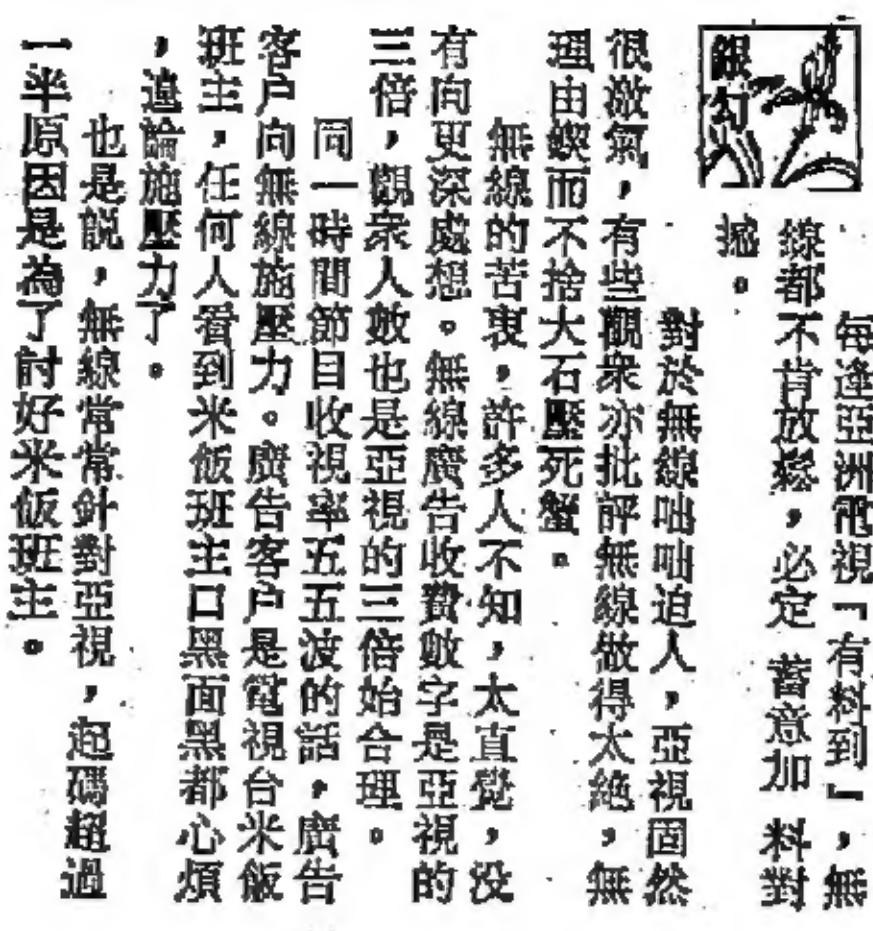 銀勾
每逢亞洲電視「有料到」，無
線都不肯放鬆，必定 蓄意加 料對
撼。
對於無線咄咄迫人，亞視固然
很激氣，有些觀衆亦批評無線做得太絶，無
理由鍥而不捨大石壓死蟹。
無線的苦衷，許多人不知，太直覺，没
有向更深處想。無線廣告收費數字是亞視的
三倍，觀衆人數也是亞視的三倍始合理。
同一時間節目收視率五五波的話，廣告
客户向無線施壓力。廣告客户是電視台米飯
班主，任何人看到米飯班主口黑面黑都心煩
，遑論施壓力了。
也是説，無線常常針對亞視，起碼超過
一半原因是為了討好米飯班主。